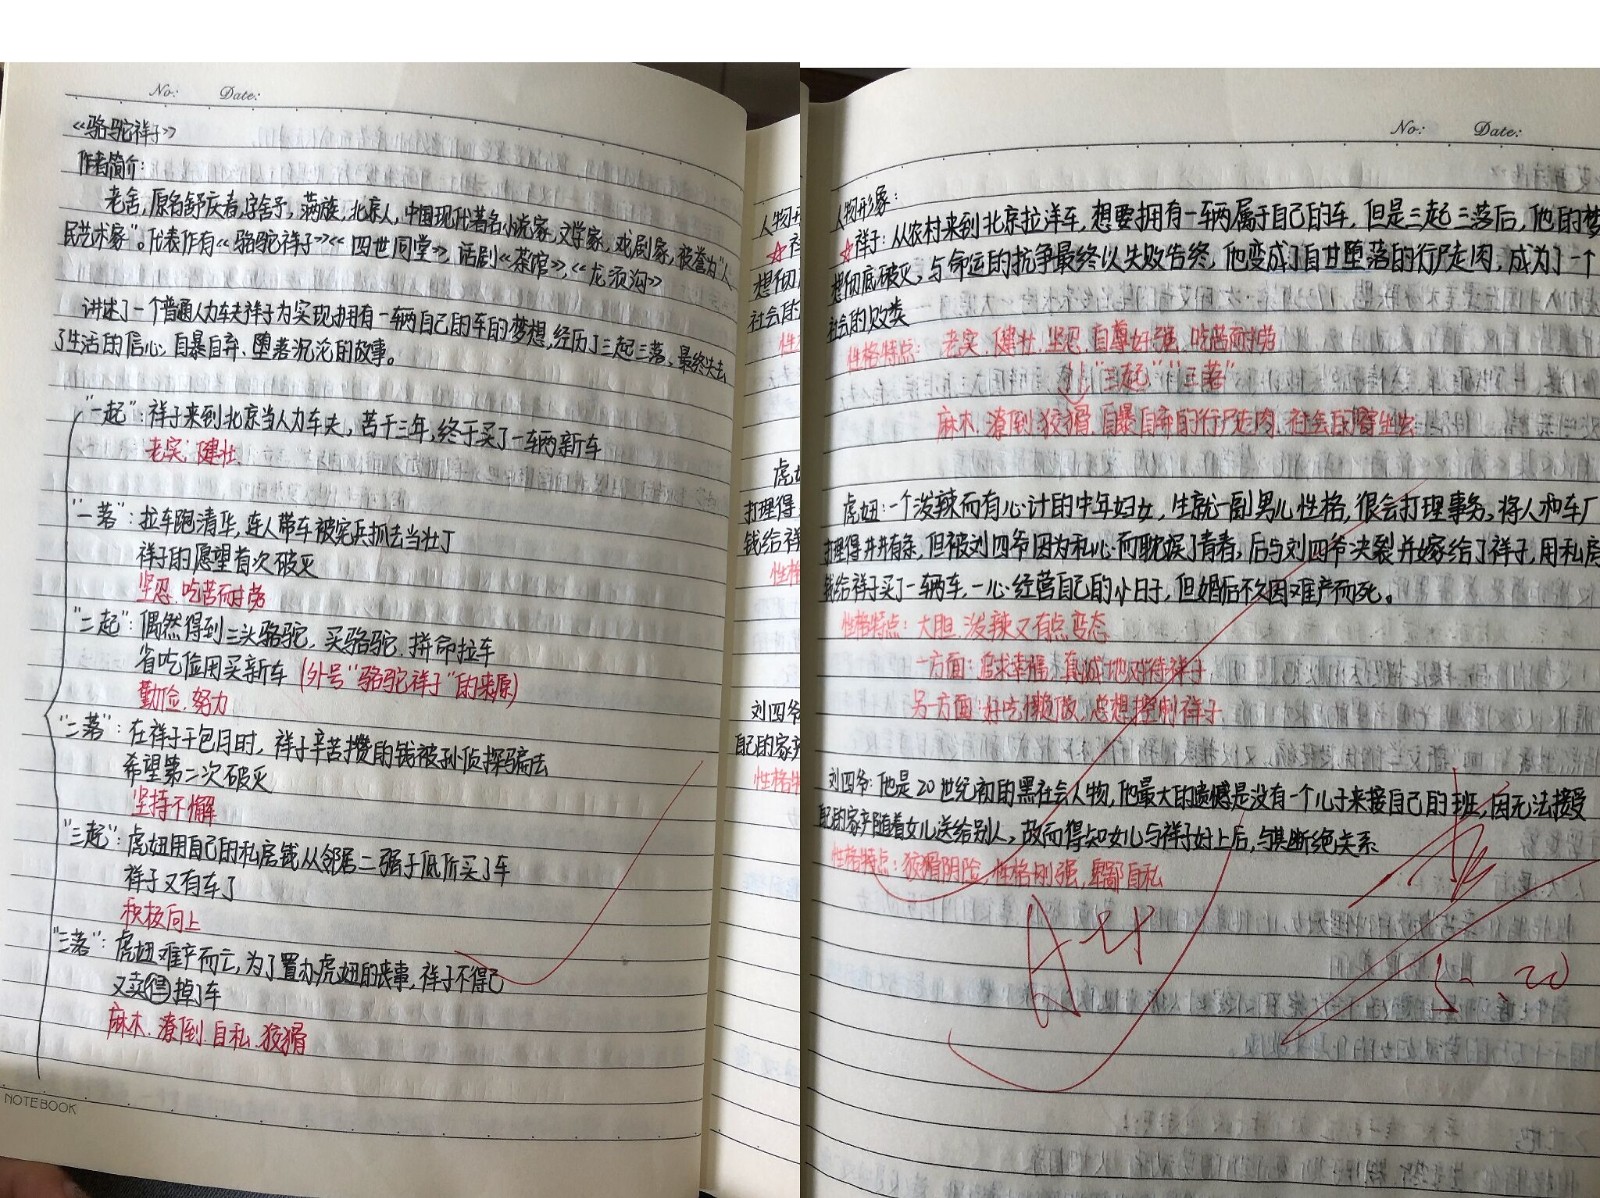 No: Date:
《骆驼祥子》
作者简介:
老舍,原名舒庆春,字舍予,满族,北京人,中国现代著名小说家,文学家,戏剧家,被誉为“人
民艺术家”。代表作有《骆驼祥子》《四世同堂》,话剧《茶馆》,《龙须沟》
讲述了一个普通人力车夫祥子为实现拥有一辆自己的车的梦想,经历了三起三落,最终失去
了生活的信心,自暴自弃、堕落沉沦的故事。
“一起”:祥子来到北京当人力车夫,苦干三年,终于买了一车两新车
老实,健壮
“一落”:拉车跑清华,连人带车被宪兵抓去当壮丁
祥子的愿望首次破灭
坚忍,吃苦耐劳
“二起”:偶然得到三头骆驼,买骆驼,拼命拉车
省吃俭用买新车(外号“骆驼祥子”的来源)
勤俭,努力
“二落”:在祥子干包月时,祥子辛苦攒的钱被孙侦探骗去
希望第二次破灭
坚持不懈
“三起”:虎妞用自己的私房钱从邻居二强子低价买了车
祥子又有车了
积极向上
“三落”:虎妞难产而亡,为了置办虎妞的丧事,祥子不得已
又卖得掉了车
麻木,潦倒,自私,狡猾
NOTEBOOK
人物形
祥
想彻
社会的
性
虎妞
打理得
钱给祥
性格
刘四爷
自己的家产
性格特
No: Date:
人物形象:
☆祥子:从农村来到北京拉洋车,想要拥有一车两属于自己的车,但是三起三落后,他的梦
想彻底破灭,与命运的抗争最终以失败告终,他变成了自甘堕落的行尸走肉,成为了一个
社会的败类
性格特点:老实,健壮,坚忍,自尊好强,吃苦耐劳
↓“三起”“三落”
麻木,潦倒,狡猾,自暴自弃的行尸走肉,社会的寄生虫
虎妞:一个泼辣而有心计的中年妇女,生就一副男儿性格,很会打理事务,将人和车厂
打理得井井有条,但被刘四爷因为私心而耽误了青春,后与刘四爷决裂并嫁给了祥子,用私房
钱给祥子买了一辆车,一心经营自己的小日子,但婚后不久因难产而死。
性格特点:大胆,泼辣又有点变态
一方面:追求幸福,真诚地对待祥子
另一方面:好吃懒做,总想控制祥子
刘四爷:他是20世纪初的黑社会人物,他最大的遗憾是没有一个儿子来接自己的班,因无法接受
自己的家产随着女儿送给别人,故而得知女儿与祥子好上后,与其断绝关系
性格特点:狡猾阴险,性格刚强,卑鄙自私
A++
5.20